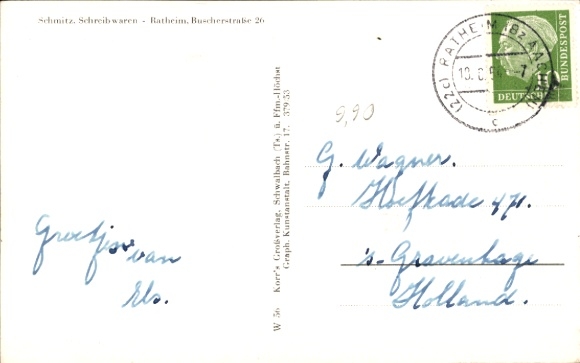 Schmitz, Schreibwaren - Ratheim, Buscherstraße 26
(22c) RATHEIM (Bz. AACHEN)
c
DEUTSCHE
BUNDESPOST
9,90
W 56 Korr's Großverlag, Schwalbach (Ts.) ü. Ffm.-Höchst
Graph. Kunstanstalt, Bahnstr. 17. 379/53
G. Wagner.
Hoefkade
's-Gravenhage
Holland.
Groetjes van
Els.